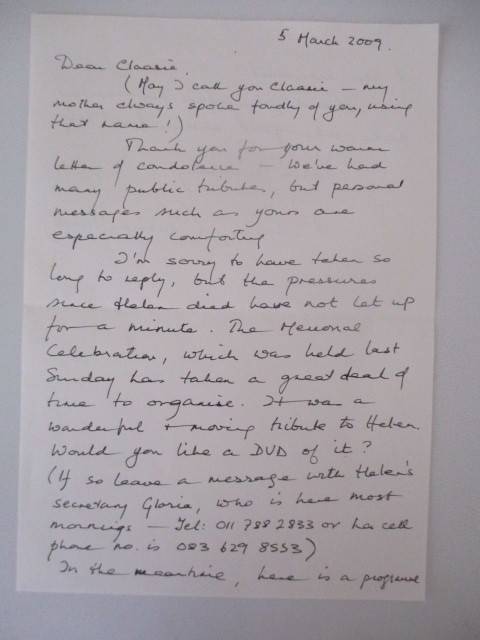 5 March 2009.
Dear Claasie.
(May I call you Claasie – my
mother always spoke fondly of you, using
that name!)
Thank you for your warm
letter of condolence – We've had
many public tributes, but personal
messages such as yours are
especially comforting
I'm sorry to have taken so
long to reply, but the pressures
since Helen died have not let up
for a minute. The Memorial
Celebration, which was held last
Sunday has taken a great deal of
time to organise. It was a
wonderful + moving tribute to Helen.
Would you like a DVD of it?
(If so leave a message with Helen's
secretary Gloria, who is here most
mornings – Tel: 011 788 2833 or her cell
phone no. is 083 629 8553)
In the meantime, here is a programme